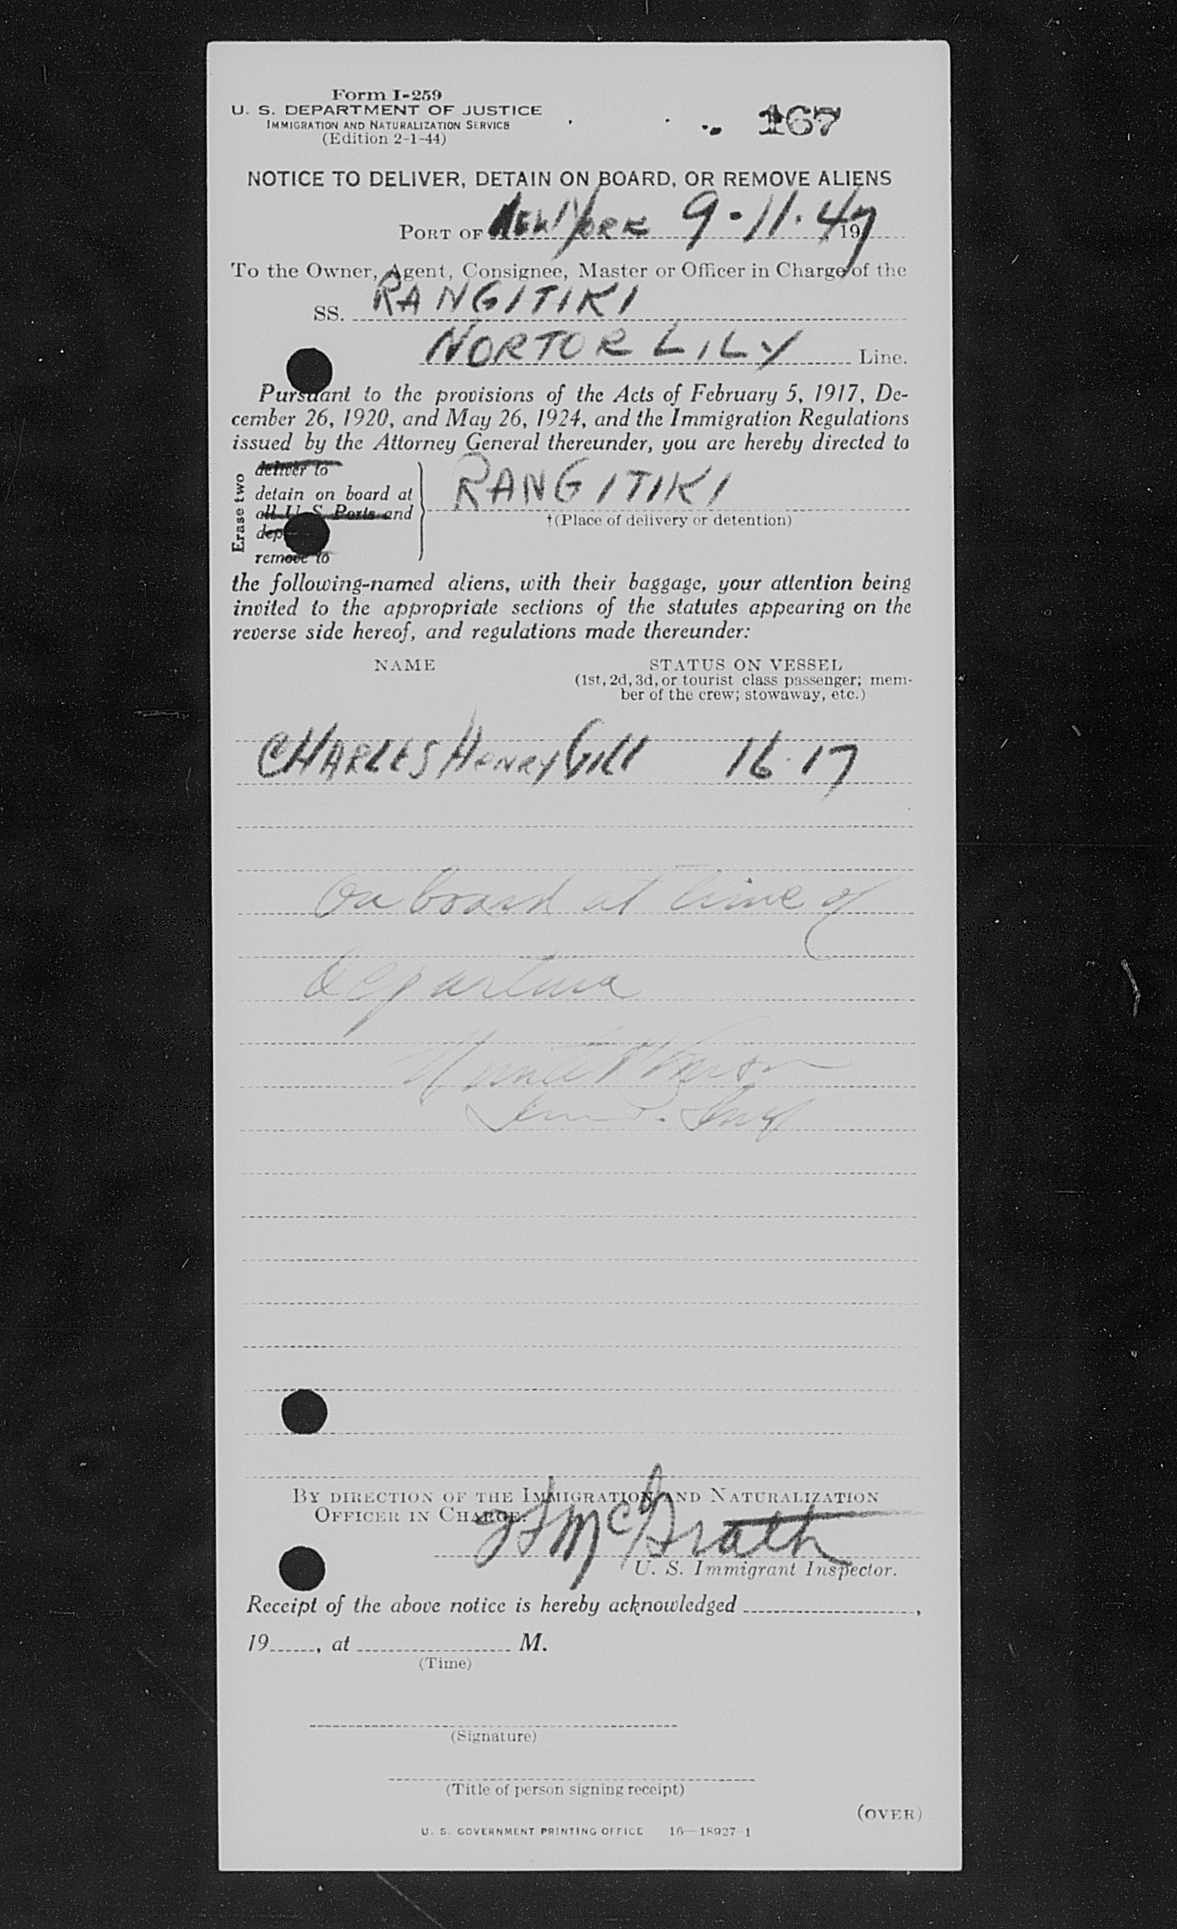 Form I-259
U. S. DEPARTMENT OF JUSTICE
IMMIGRATION AND NATURALIZATION SERVICE
(Edition 2-1-44)
167
NOTICE TO DELIVER, DETAIN ON BOARD, OR REMOVE ALIENS
PORT OF New York 9-11-47 19
To the Owner, Agent, Consignee, Master or Officer in Charge of the
SS. RANGITIKI
NORTOR LILY Line.
Pursuant to the provisions of the Acts of February 5, 1917, De-
cember 26, 1920, and May 26, 1924, and the Immigration Regulations
issued by the Attorney General thereunder, you are hereby directed to
Erase two
deliver to
detain on board at
all U S Ports and
dep
remove to
RANGITIKI
†(Place of delivery or detention)
the following-named aliens, with their baggage, your attention being
invited to the appropriate sections of the statutes appearing on the
reverse side hereof, and regulations made thereunder:
NAME STATUS ON VESSEL
(1st, 2d, 3d, or tourist class passenger; mem-
ber of the crew; stowaway, etc.)
CHARLES HENRY Gill 16-17
On board at time of
departure
BY DIRECTION OF THE IMMIGRATION AND NATURALIZATION
OFFICER IN CHARGE:
McGrath
U. S. Immigrant Inspector.
Receipt of the above notice is hereby acknowledged ,
19 , at M.
(Time)
(Signature)
(Title of person signing receipt)
(OVER)
U. S. GOVERNMENT PRINTING OFFICE 16—18927-1